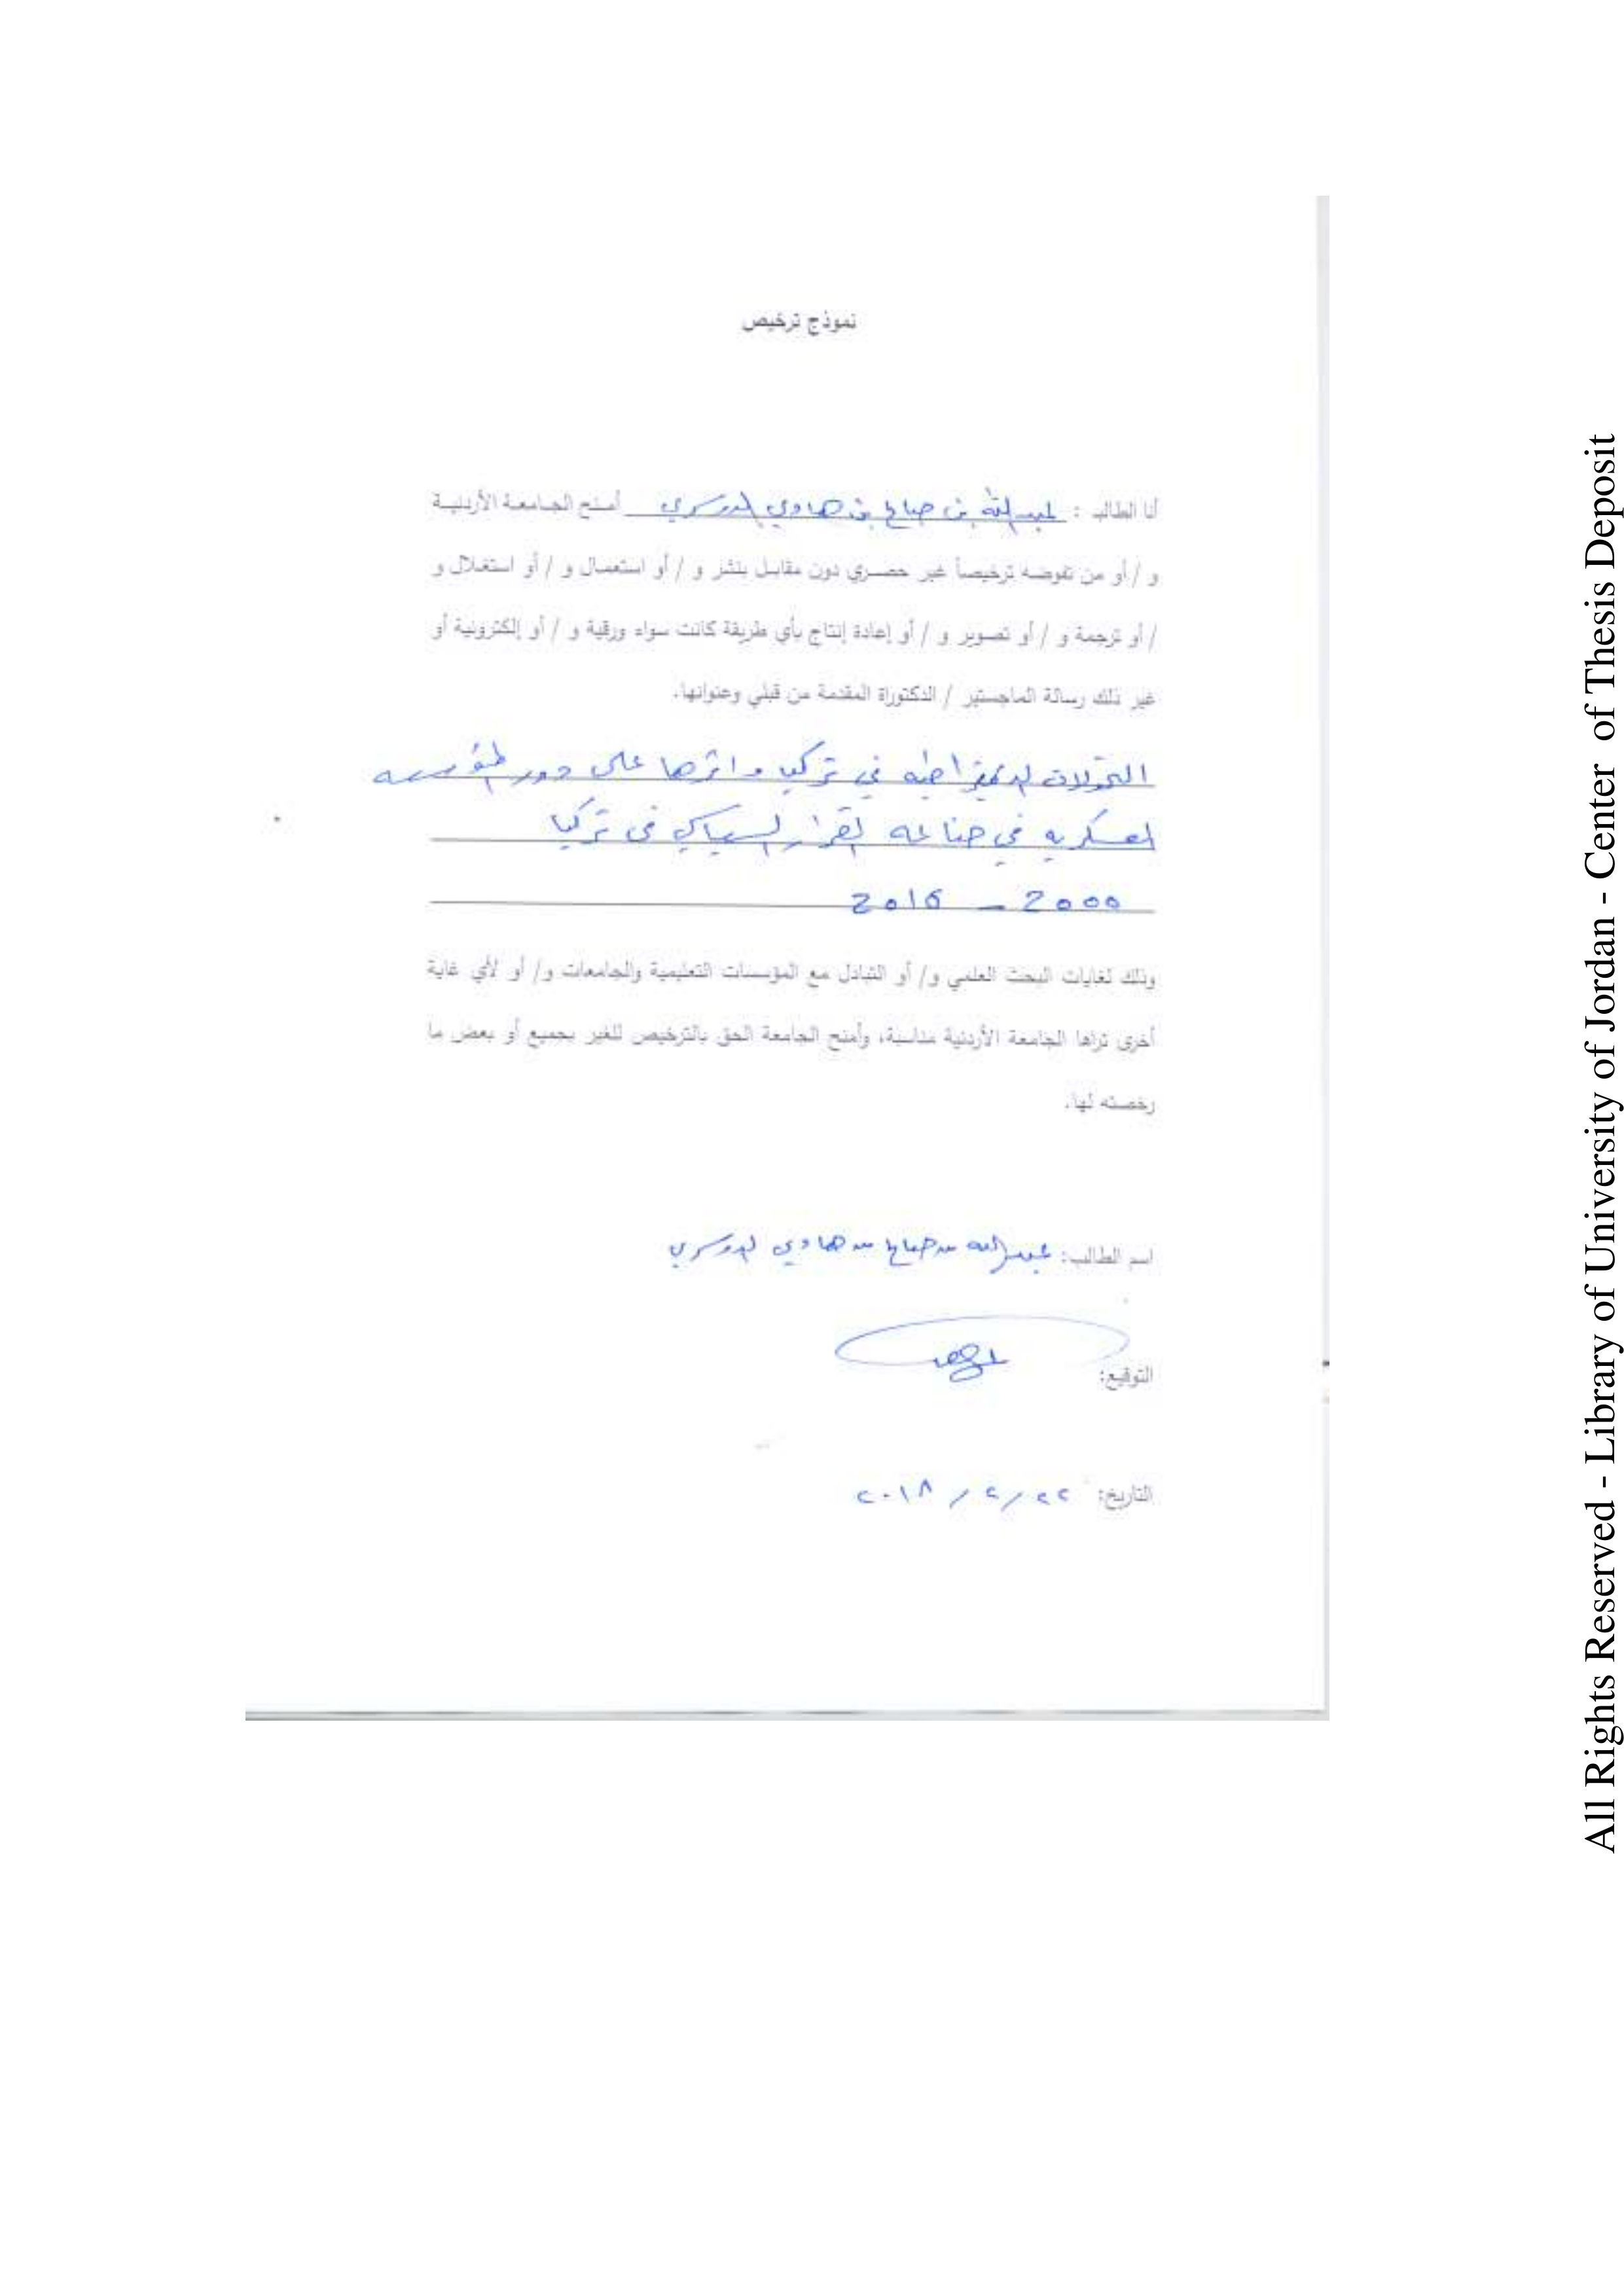 نموذج ترخيص
أنا الطالب : عبدالله بن صباح بن هادي الدوسري أمنح الجامعة الأردنية
و / أو من تفوضه ترخيصاً غير حصري دون مقابل بنشر و / أو استعمال و / أو استغلال و
/ أو ترجمة و / أو تصوير و / أو إعادة إنتاج بأي طريقة كانت سواء ورقية و / أو إلكترونية أو
غير ذلك رسالة الماجستير / الدكتوراة المقدمة من قبلي وعنوانها.
التحولات الديمقراطيه في تركيا واثرها على دور المؤسسه
العسكريه في صناعه القرار السياسي في تركيا
2000 – 2016
وذلك لغايات البحث العلمي و/ أو التبادل مع المؤسسات التعليمية والجامعات و/ أو لأي غاية
أخرى تراها الجامعة الأردنية مناسبة، وأمنح الجامعة الحق بالترخيص للغير بجميع أو بعض ما
رخصته لها.
اسم الطالب: عبدالله بن صباح بن هادي الدوسري
التوقيع:
التاريخ: ٢٢ / ٢ / ٢٠١٨
All Rights Reserved - Library of University of Jordan - Center of Thesis Deposit